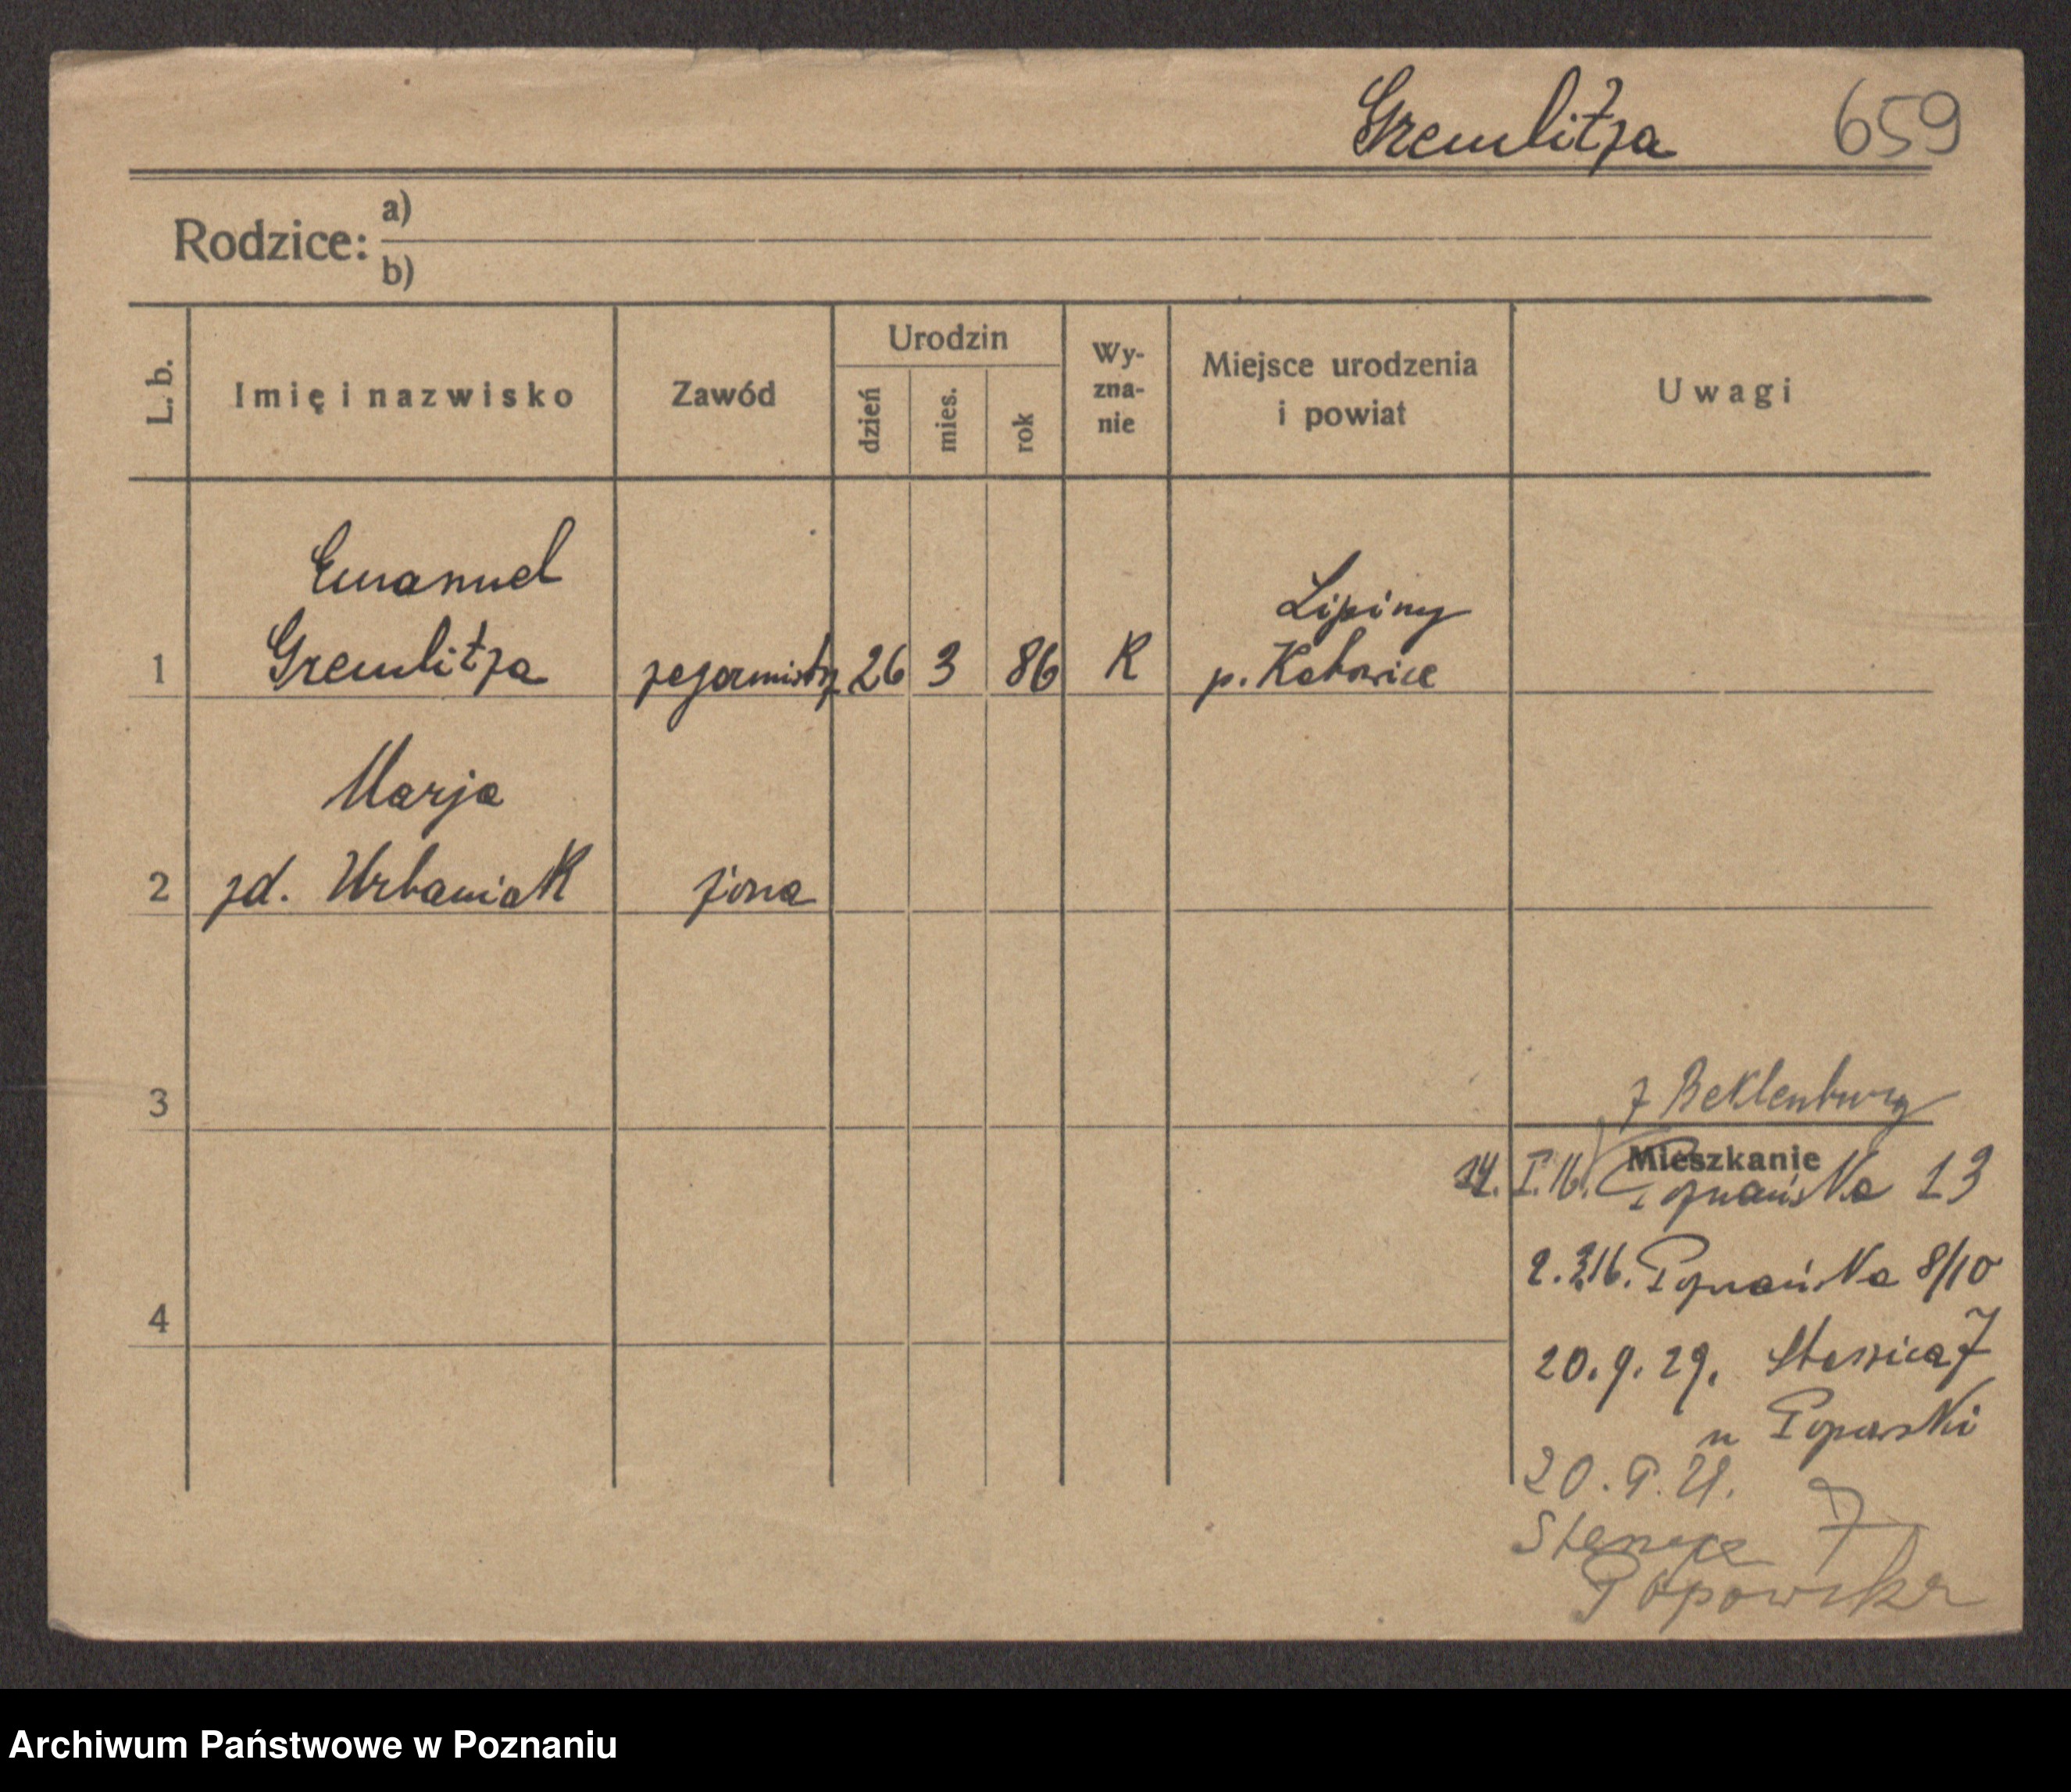 Gremlitza 659
Rodzice: a)
b)
L. b. Imię i nazwisko Zawód Urodzin dzień mies. rok Wy-zna-nie Miejsce urodzenia i powiat Uwagi
Emanuel
1 Gremlitza zegarmistrz 26 3 86 K Lipiny
p. Katowice
Marja
2 zd. Urbaniak żona
3
z Beklenburg
Mieszkanie
14. I. 16. Poznańska 13
2. 3. 16. Poznańska 8/10
4
20. 9. 29. Staszica 7
u Popowski
20. 9.
7
Archiwum Państwowe w Poznaniu